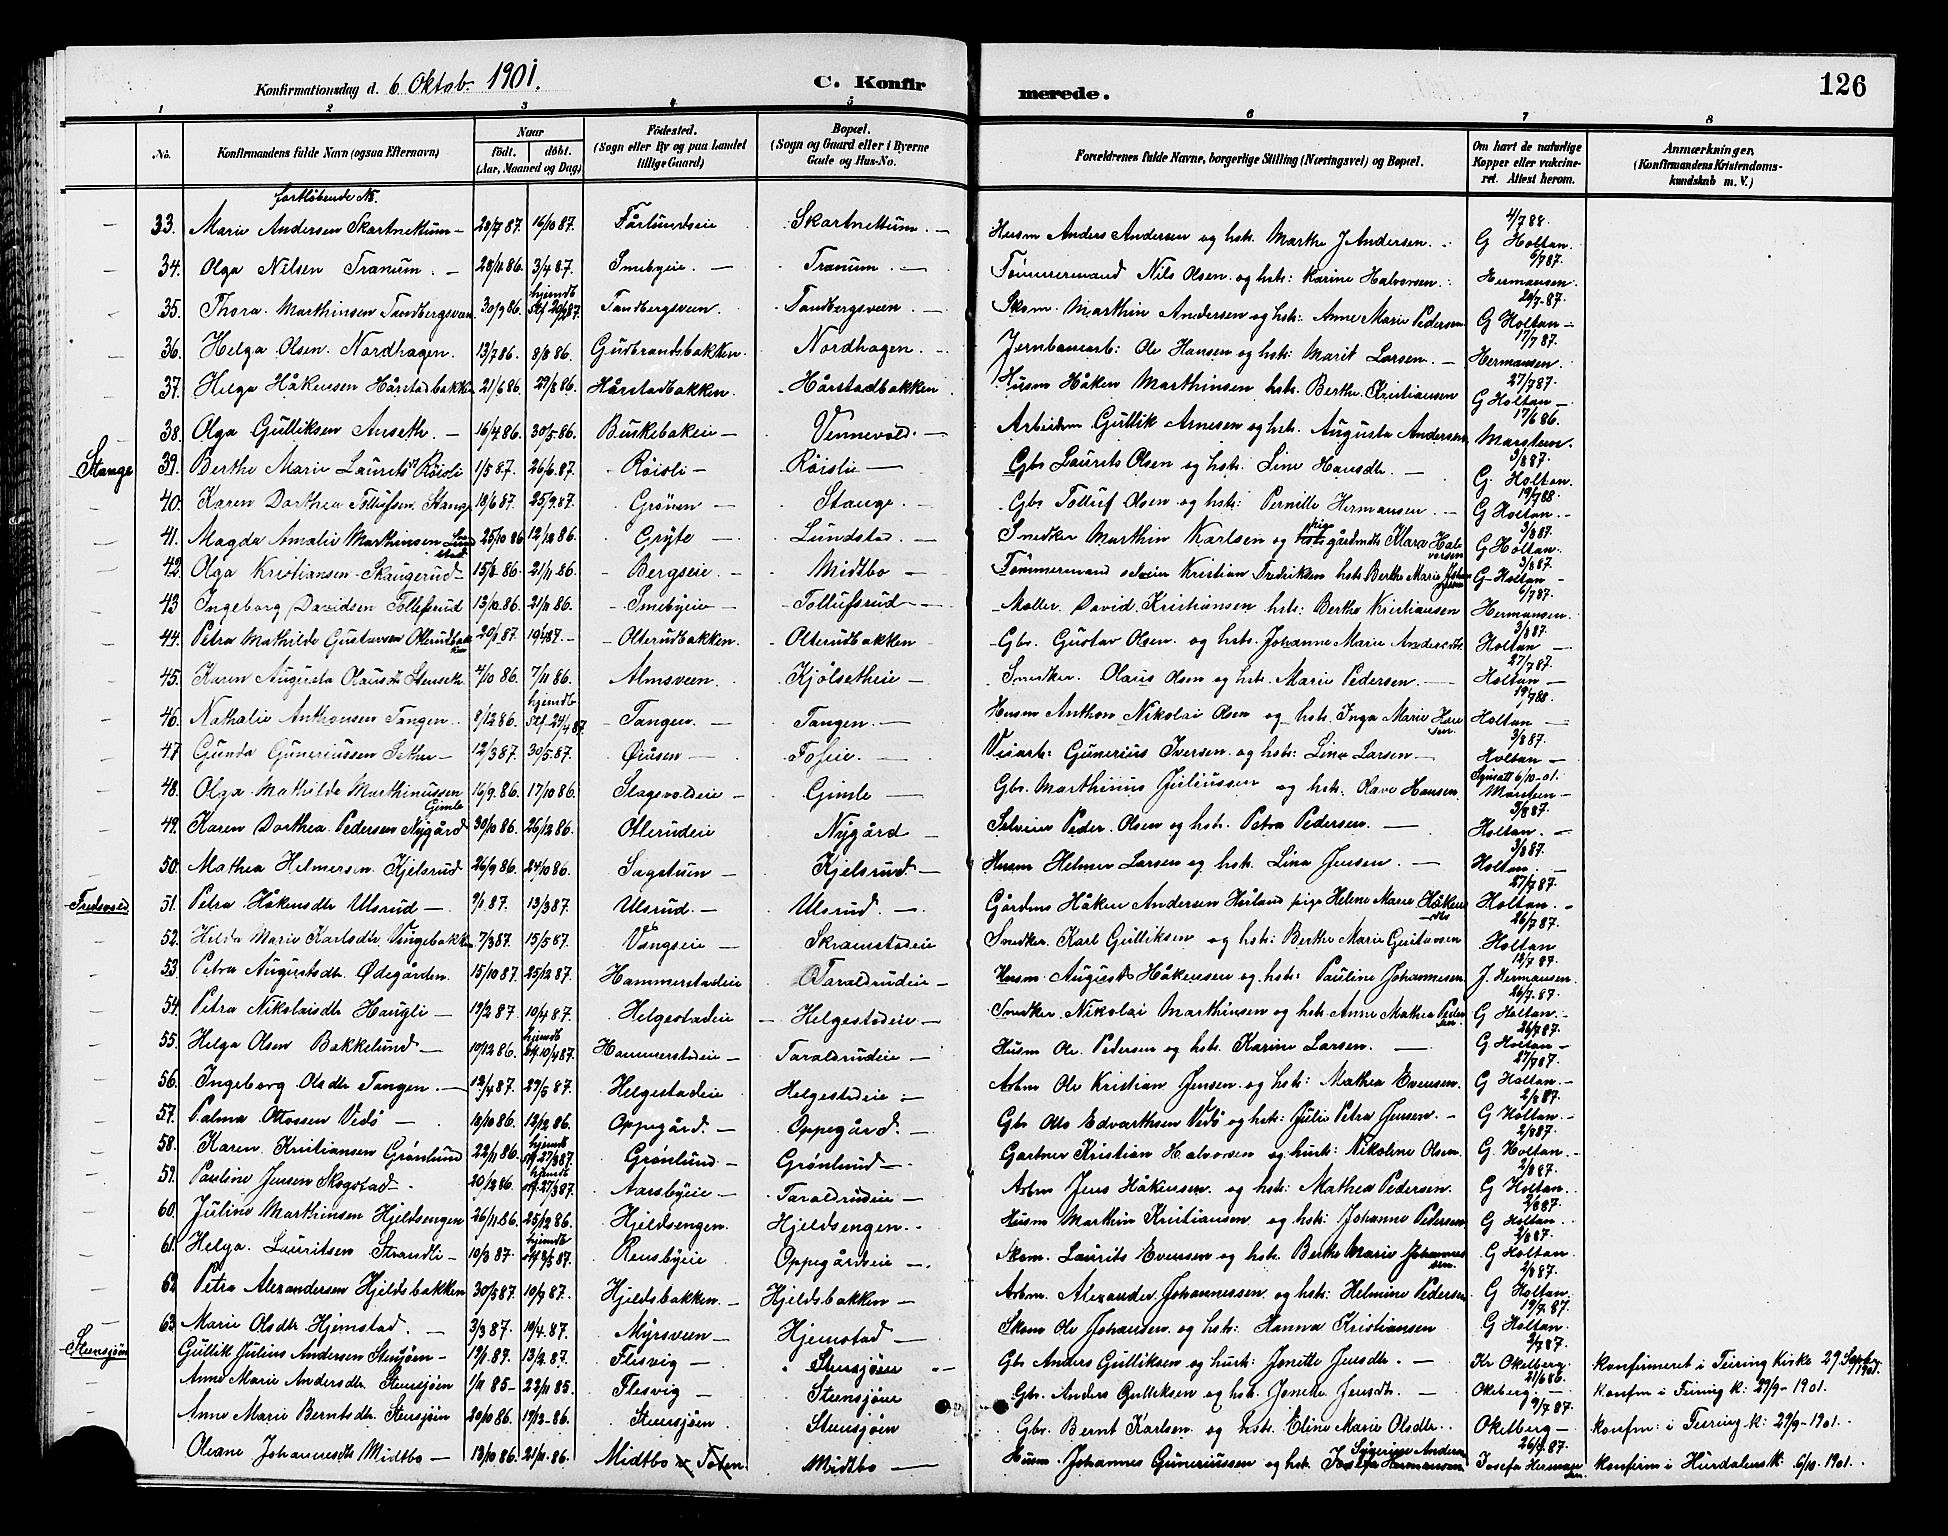 Konfirmationsdag d. 6 Oktob. 1901. C. Konfirmerede. 126
1 2 3 4 5 6 7 8
No. Konfirmandens fulde Navn (ogsaa Efternavn) Naar født. døbt. (Aar, Maaned og Dag) Fødested. (Sogn eller By og paa Landet tillige Gaard) Bopæl. (Sogn og Gaard eller i Byerne Gade og Hus-No. Forældrenes fulde Navne, borgerlige Stilling (Næringsvei) og Bopæl. Om havt de naturlige Kopper eller vaccineret. Attest herom. Anmærkninger, (Konfirmandens Kristendomskundskab m. V.)
fortløbende No.
33. Marie Andersen Skartnettum - 28/7 87. 16/10 87. Skartnettum. - Husm Anders Andersen og hst: Marthe J Andersen. 4/7 88. G Holtan.
34. Olga Nilsen Tranum. - 28/11 86. 3/4 87. Smebyeie. - Tranum. - Tømmermand Nils Olsen og hst: Karine Halvorsen. 6/7 87. Hermansen.
35. Thora Marthinsen Tandbergsveen 30/9 86. hjemdb Tandbergsveen. Tandbergsveen. - Skom. Marthin Andersen og hst: Anne Marie Pedersen G Holtan -
36. Helga Olsen Nordhagen. 13/7 86. 8/8 86. Gudbrandsbakken. Nordhagen. - Jernbanearb: Ole Hansen og hst: Marit Larsen. - 17/7 87. Hermansen.
37. Helga Håkensen Hårstadbakken 21/6 86. 29/8 86. Hårstadbakken. Hårstadbakken Husm Håken Marthinsen hst: Berthe Kristiansen 27/7 87. G Holtan -
38. Olga Gulliksen Anseth. - 16/4 86. 30/5 86. Buskebakeie - Vennevold. - Arbeidsm Gullik Arnesen og hst. Augusta Andersen 17/6 86. Marstein.
Stange 39. Berthe Marie Laurits Røisli 1/5 87. 26/6 87. - Røisli - Røislie - Gbr Laurits Olsen og hst: Line Hansdtr. - 3/8 87. G. Holtan.
40. Karen Dorthea Tollufsen Stange 18/6 87. 25/9 87. Grønen - Stange. - Gbr Tolluf Olsen og hst: Pernille Hermansen. - 19/7 88. G Holtan -
41. Magda Amalie Marthinsen Lundstad 25/10 86 12/12 86. Gryte - Lundstad - Snedker Marthin Karlsen og pige gårdmdt Mara Halvorsen 3/8 87. G Holtan.
42. Olga Kristiansen Skaugerud - 15/8 86. 21/11 86. - Bergseie - Midtbo - Tømmermand selveier Kristian Fredriksen hst: Berthe Marie 3/8 87. G Holtan -
43 Ingeborg Davidsen Tollefsrud 13/10 86. 21/11 86. - Smebyeie - Tollufsrud - Møller. David Kristiansen hst: Berthe Kristiansen 6/7 87. Hermansen.
44. Petra Mathilde Gustavsen Olterudbakken 20/1 87. 19/4 87. - Olterudbakken. Olterudbakken Gbr. Gustav Olsen og hst. Johanne Marie Andersdt. 3/8 87. Holtan -
45. Karen Augusta Olausdt Stenseth 4/10 86. 7/11 86. Almsveen. Kjølsetheie - Snedker. Olaus Olsen og hst. Marie Pedersen. - 27/7 87. Holtan. -
46. Nathalie Anthonsen Tangen. 8/12 86. hjemdb 24/4 87. - Tangen. - Tangen. - Husm Anthon Nikolai Olsen og hst. Inga Marie Hansen. 19/7 88. Holtan -
47. Gunda Guneriussen Sether - 12/3 87. 30/5 87. Øiusen - Fosseie. - Veiarb: Gunerius Iversen og hst: Lina Larsen - 3/8 87. Holtan -
48. Olga Mathilde Marthinussen Gimle 16/9 86. 17/10 86. Slagsvoldeie - Gimle - Gbr. Marthinius Juliussen og hst. Olave Hansen. 6/10-01. Marstein -
49. Karen Dorthea Pedersen Nygård 30/10 86. 26/12 86. Olterudeie Nygård - Selveier Peder Olsen og hst: Petra Pedersen. - 3/8 87. Holtan. -
50. Mathea Helmersen Kjelsrud 26/9 86. 24/10 86. Sagstuen - Kjelsrud - Husm Helmer Larsen og hst. Lina Jensen. - 3/8 87. Holtan. -
Fredsvold 51. Petra Håkensdtr Ulsrud - 9/1 87. 13/3 87. Ulsrud. - Ulsrud. - Gårdm Håken Andersen pige Helene Marie Håkensdtr 27/7 87. Holtan. -
52. Hilda Marie Karlsdtr. Vengebakken 7/3 87. 15/5 87. Vengseie - Skramstadeie Snedker. Karl Gulliksen og hst: Berthe Marie Gustavsen 26/7 87. Holtan
53. Petra Augustsdtr. Ødegården. 15/10 87. 25/12 87. Hammerstadeie Taraldrudeie - Husm. August Håkensen og hst: Pauline Johannesen 12/7 87. J. Hermansen.
54. Petra Nikolaisdtr Haugli - 17/2 87. 10/4 87. Helgestadeie - Helgestadeie - Snedker. Nikolai Marthinsen og hst. Anne Mathea Pedersen 26/7. 87. G Holtan. -
55. Helga Olsen Bakkelund - 10/12 86. hjemdb 10/4 87. Hammerstadeie - Taraldrudeie - Husm Ole Pedersen og hst. Karine Larsen. - 26/7 87. G. Holtan -
56. Ingeborg Olsdtr Tangen. - 12/4 87. 29/5 87. Helgestadeie Helgestadeie - Arbm Ole Kristian Jensen og hst: Mathea Evensen. 27/7 87. G Holtan. -
57. Palma Ottossen Vedø - 18/10 86. 12/12 86. Oppegård. - Oppegård. - Gbr Otto Edvarthsen Vedø og hst: Julie Petra Jensen. - 2/8 87. G Holtan -
58. Karen Kristiansen Grønlund 22/11 86. hjemdb 27/3 87. Grønlund - Grønlund - Gartner Kristian Halvorsen og hust: Nikoline Olsen. 2/8 87. G. Holtan. -
59. Pauline Jensen Skogstad. 20/12 86. hjemdb 27/3 87. Aarsbyeie - Taraldrudeie - Arbm Jens Håkensen og hst: Mathea Pedersen. 2/8 87. G Holtan.
60. Juline Marthinsen Hjeldsengen 26/11 86. 25/12 86. Hjeldsengen. Hjeldsengen. Husm Marthin Kristiansen og hst: Johanne Pedersen 2/8 87. G Holtan -
61. Helga. Lauritsen Strandli - 10/3 87. hjemdb Rensbyeie Oppegårdeie -. Skom. Laurits Evensen og hst. Berthe Marie Johannessen. 2/8 87. G Holtan
62 Petra Alexandersen Hjeldsbakken 30/5 87. 10/7 87. Hjeldsbakken. - Hjeldsbakken - Arbm. Alexander Johannessen og hst: Helmine Pedersen. 2/8 87. G Holtan.
63. Marie Olsdtr. Hjemstad. - 3/3 87. 10/4. 87. Myrsveen - Hjemstad - Skom Ole Johansen og hst: Hanna Kristiansen 19/7. 87. G Holtan.
Stensjøen Gullik Julius Andersen Stensjøen - 19/1 87. 13/2 87. - Flesvig - Stensjøen - Gbr Anders Gulliksen og hust: Jonette Jensdtr - 2/7 87. Kr Okelberg. konfirmeret i Feiring Kirke 29 Septbr 1901.
Anne Marie Andersdtr Stensjøen 1/11 85 - 22/11 85. Flesvig - Stensjøen Gbr. Anders Gulliksen og hst: Jonette Jensdtr. - 21/6 86. Okelberg. - konfm i Feiring K: 29/9 - 1901.
Anne Marie Berntsdtr. Stensjøen 20/10 86. 19/12 - 86. Stensjøen Stensjøen Gbr. Bernt Karlsen og hst. Eline Marie Olsdtr. 9/7 87. Okelberg - konfm: i Feiring K: 29/9 - 1901.
Oleane Johannesdtr Midtbo - 13/10 86. 21/11. 86. Midtbo Midtbo - Husm. Johannes Guneriussen og hst. 26/8 87. Josefa Hermansen konfirm i Hurdalens K: 6/10. 1901.